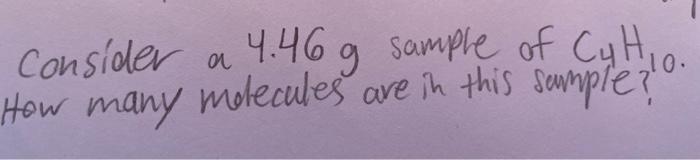 Consider a 4.46 g sample of C₄H₁₀.
How many molecules are in this sample?